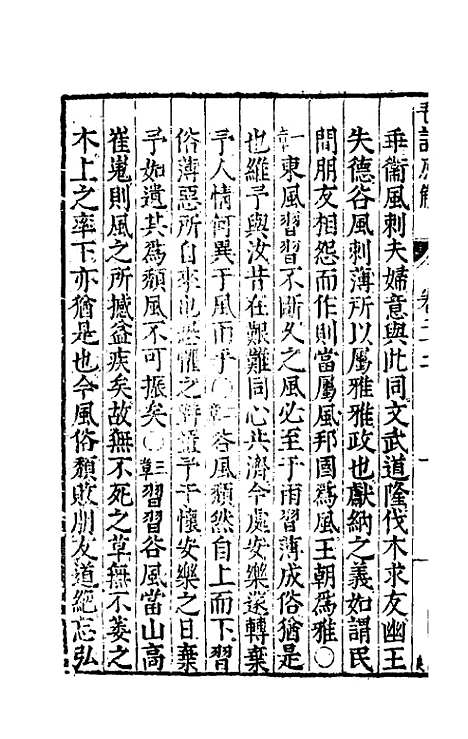 毛詩原解 卷二十
乖衞風刺夫婦意與此同文武道隆伐木求友幽王
失德谷風刺薄所以屬雅雅政也獻納之義如謂民
間朋友相怨而作則當屬風邦國爲風王朝爲雅〇
一章東風習習不斷久之風必至于雨習薄成俗猶是
也維予與汝昔在艱難同心共濟今處安樂遂轉棄
予人情何異于風雨乎〇二章谷風頹然自上而下習
俗薄惡所自來也恐懼之時寘予于懷安樂之日棄
予如遺其爲頹風不可振矣〇三章習習谷風當山高
崔嵬則風之所撼益疾矣故無不死之草無不萎之
木上之率下亦猶是也今風俗頹敗朋友道絕忘弘